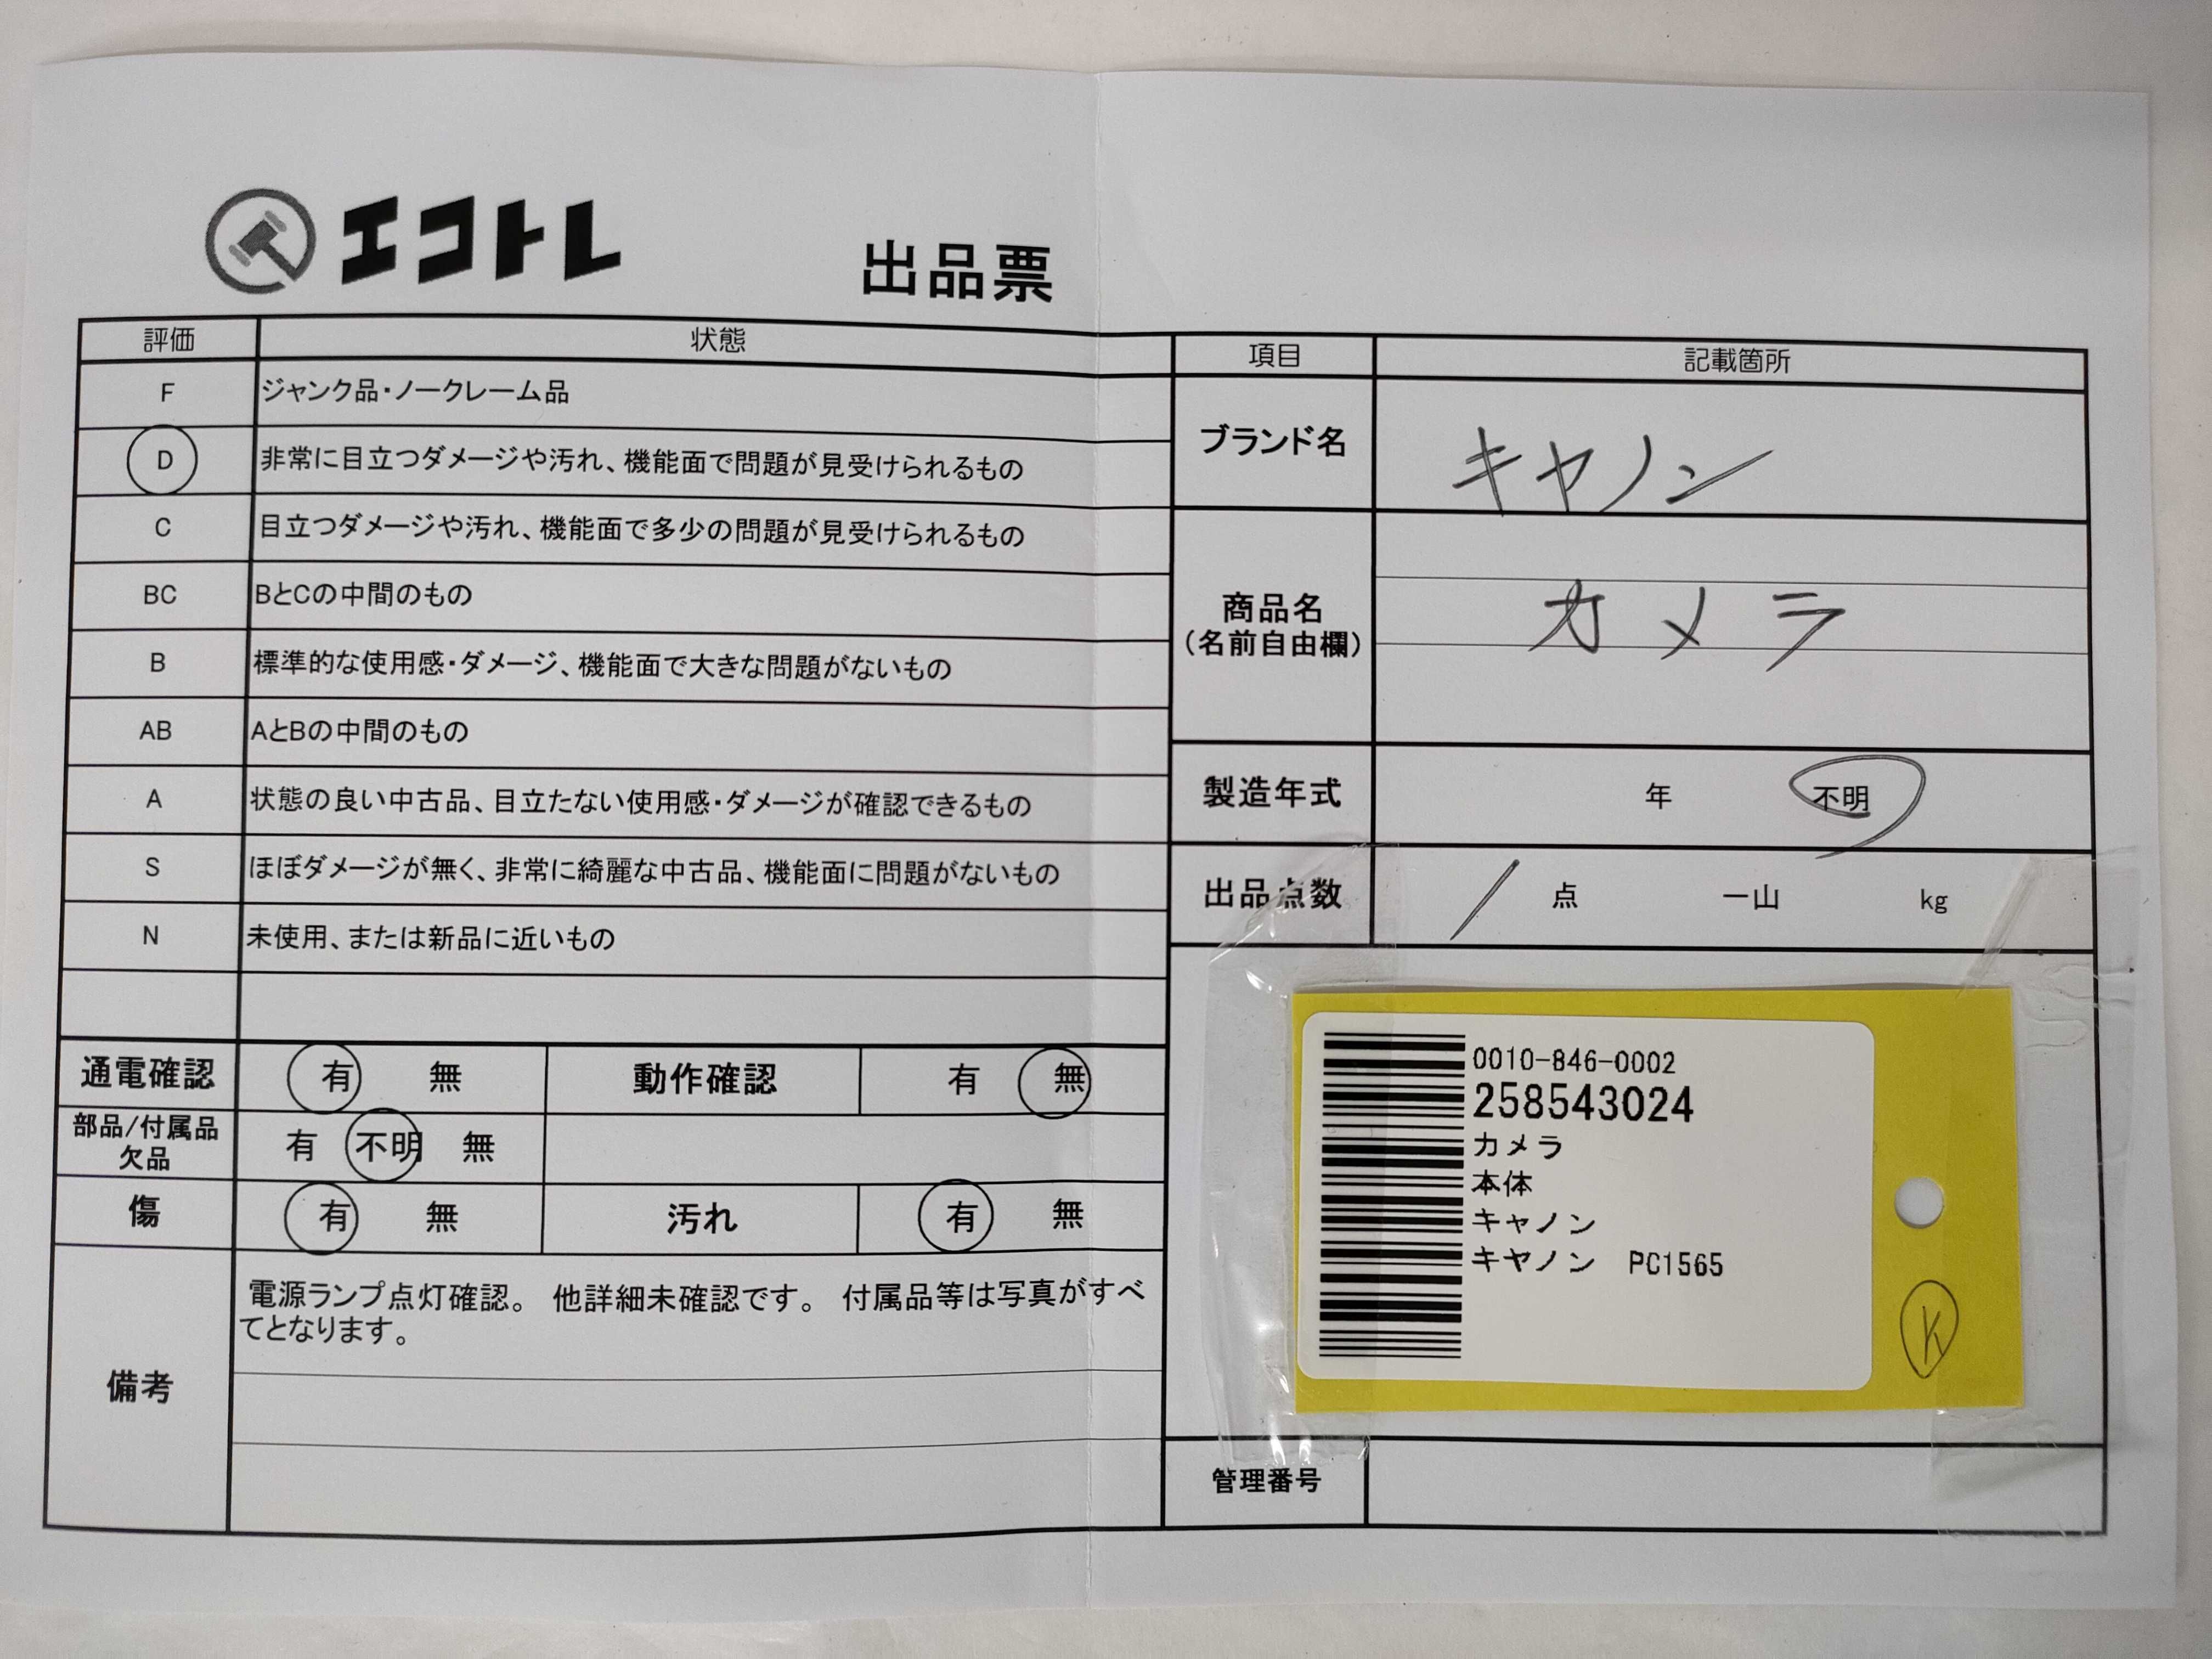 エコトレ
出品票
評価 状態
F ジャンク品・ノークレーム品
D 非常に目立つダメージや汚れ、機能面で問題が見受けられるもの
C 目立つダメージや汚れ、機能面で多少の問題が見受けられるもの
BC BとCの中間のもの
B 標準的な使用感・ダメージ、機能面で大きな問題がないもの
AB AとBの中間のもの
A 状態の良い中古品、目立たない使用感・ダメージが確認できるもの
S ほぼダメージが無く、非常に綺麗な中古品、機能面に問題がないもの
N 未使用、または新品に近いもの
通電確認 有 無 動作確認 有 無
部品/付属品
欠品
有 不明 無
傷 有 無 汚れ 有 無
備考
電源ランプ点灯確認。 他詳細未確認です。 付属品等は写真がすべ
てとなります。
項目 記載箇所
ブランド名 キヤノン
商品名
(名前自由欄)
カメラ
製造年式 年 不明
出品点数 1 点 一山 kg
0010-846-0002
258543024
カメラ
本体
キャノン
キヤノン PC1565
K
管理番号